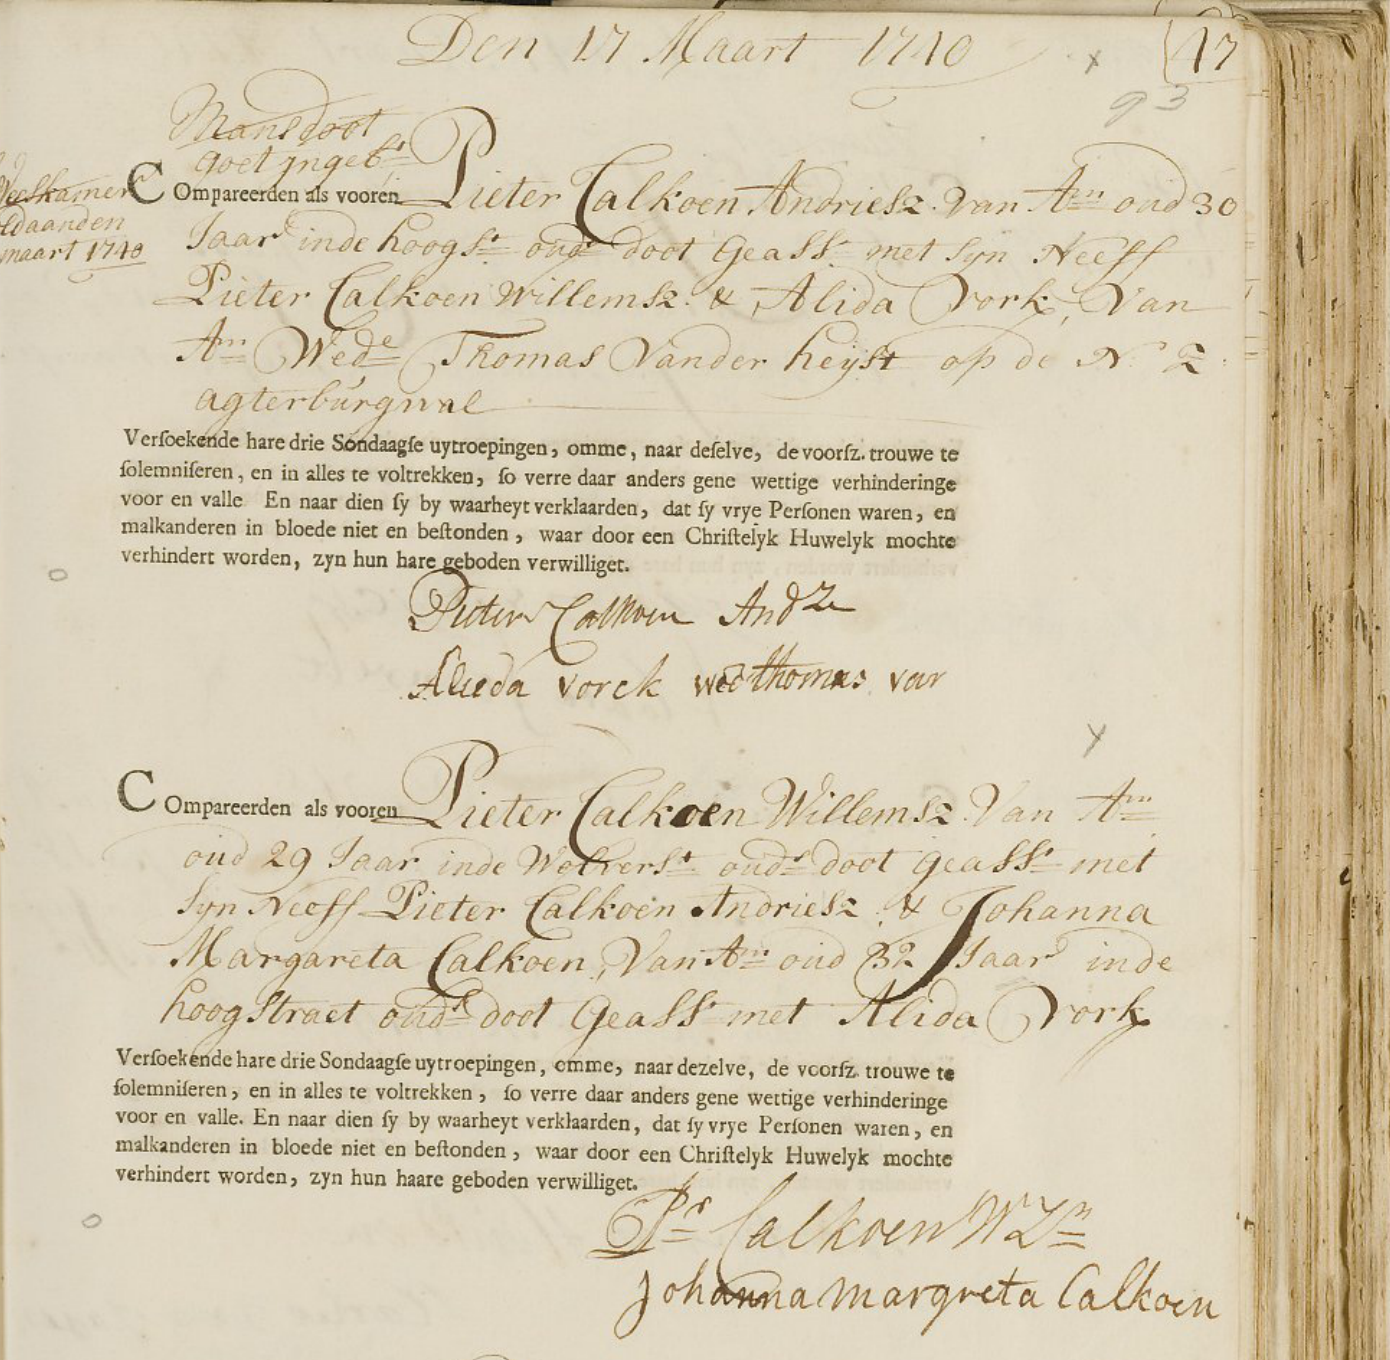 Den 17 Maart 1740
x
17
93
Mans doot
goet yngebt
Weeskamer
ldaanden
maart 1740
COmpareerden als vooren Pieter Calkoen Andriesz. Van Am oud 30
Jaar inde hoogst. oudrs doot geasst. met syn Neeff
Pieter Calkoen Willemsz. & Alida Vork, Van
Am Wede Thomas Vander heyst op de N. Z
agterburgwal
Versoekende hare drie Sondaagse uytroepingen, omme, naar deselve, de voorsz. trouwe te
solemniseren, en in alles te voltrekken, so verre daar anders gene wettige verhinderinge
voor en valle En naar dien sy by waarheyt verklaarden, dat sy vrye Personen waren, en
malkanderen in bloede niet en bestonden, waar door een Christelyk Huwelyk mochte
verhindert worden, zyn hun hare geboden verwilliget.
Pieter Calkoen Andz
Alieda vorck wed thomas van
x
COmpareerden als vooren Pieter Calkoen Willemsz. Van Am
oud 29 Jaar inde Wolverst. oudrs doot geasst. met
syn Neeff Pieter Calkoen Andriesz. & Johanna
Margareta Calkoen, Van Am oud 32 Jaar inde
hoogstraet oudrs doot geasst. met Alida Vork
Versoekende hare drie Sondaagse uytroepingen, omme, naar dezelve, de voorsz. trouwe te
solemniseren, en in alles te voltrekken, so verre daar anders gene wettige verhinderinge
voor en valle. En naar dien sy by waarheyt verklaarden, dat sy vrye Personen waren, en
malkanderen in bloede niet en bestonden, waar door een Christelyk Huwelyk mochte
verhindert worden, zyn hun haare geboden verwilliget.
Pr Calkoen WZn
Johanna margreta Calkoen